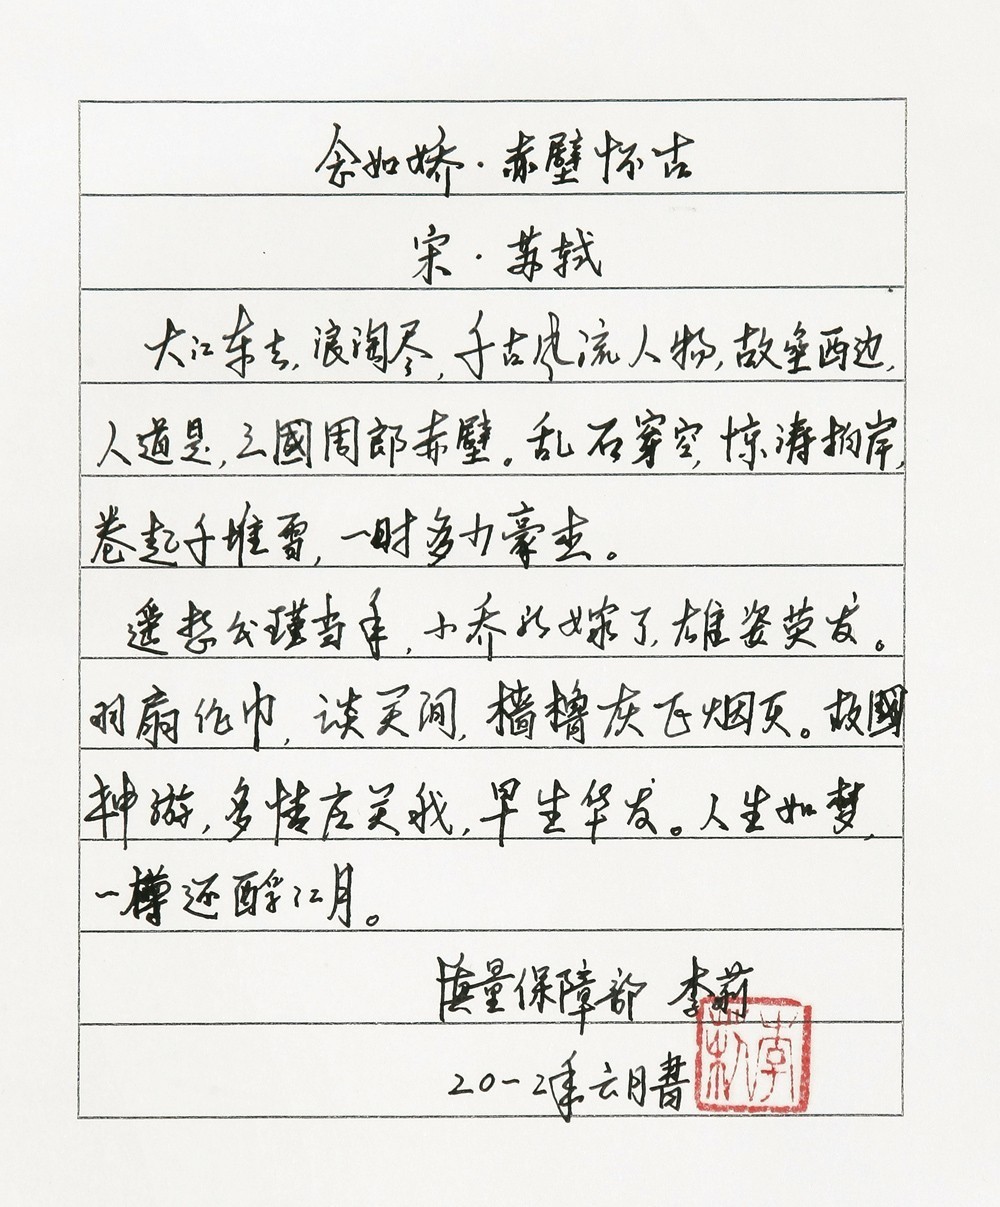 念如娇·赤壁怀古
宋·苏轼
大江东去,浪淘尽,千古风流人物,故垒西边,
人道是,三國周郎赤壁。乱石穿空,惊涛拍岸,
卷起千堆雪,一时多少豪杰。
遥想公瑾当年,小乔初嫁了,雄姿英发。
羽扇纶巾,谈笑间,樯橹灰飞烟灭。故國
神游,多情应笑我,早生华发。人生如梦,
一樽还酹江月。
质量保障部 李莉
20一2年六月書
李莉